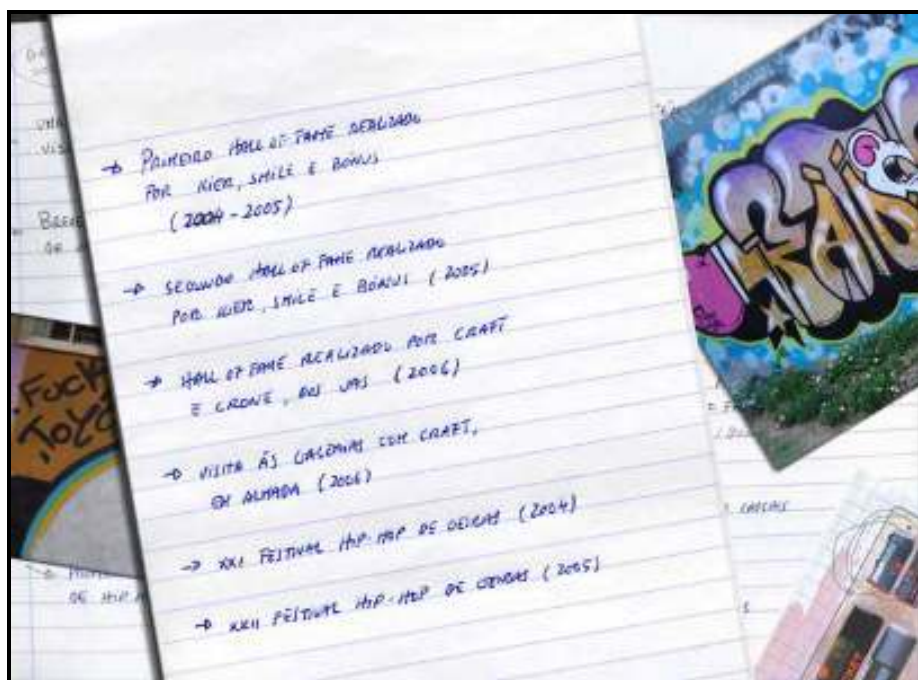 → PRIMEIRO HALL OF FAME REALIZADO
POR KIER, SMILE E BÓNUS
(2004-2005)
→ SEGUNDO HALL OF FAME REALIZADO
POR KIER, SMILE E BÓNUS (2005)
→ HALL OF FAME REALIZADO POR CRAFT
E CRONE, DOS UAS (2006)
→ VISITA ÀS GALERIAS COM CRAFT,
EM ALMADA (2006)
→ XXI FESTIVAL HIP-HOP DE OEIRAS (2004)
→ XXII FESTIVAL HIP-HOP DE OEIRAS (2005)
FUCK
TOYS
DE HIP
CASCAIS